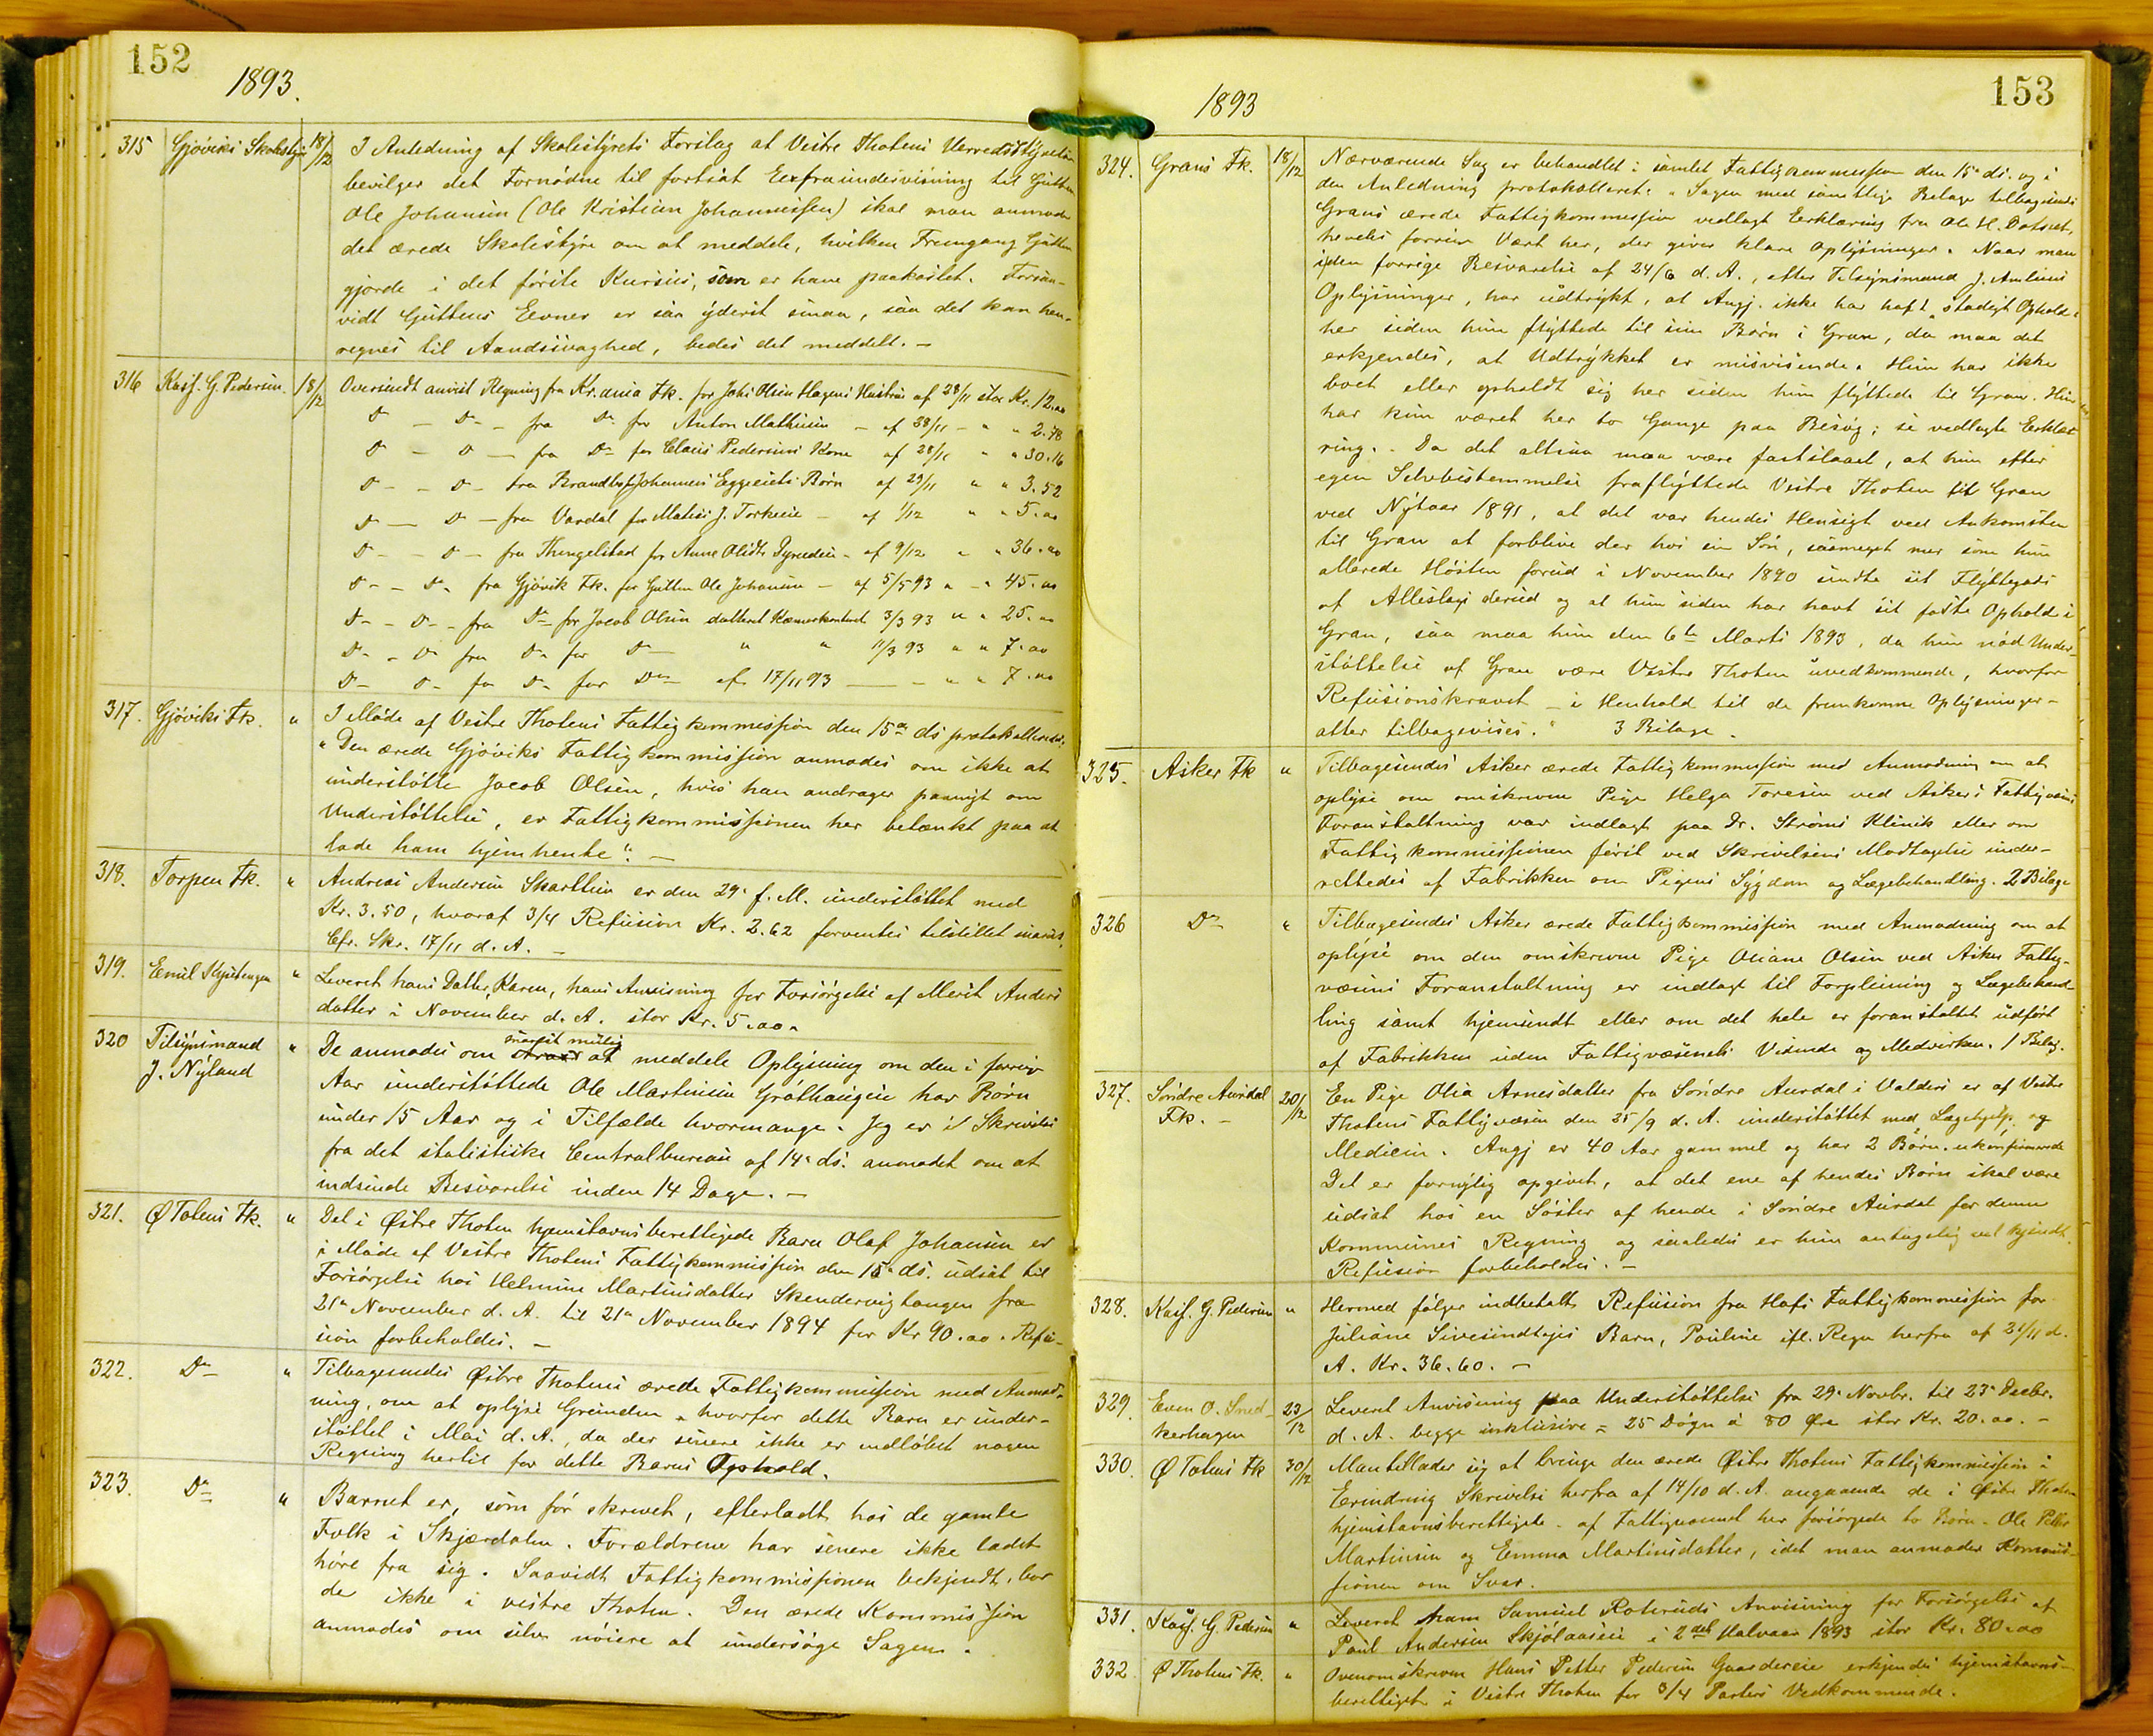 152
1893.
315 Gjøviks Skolestyre 18/12 I Anledning af Skolestyrets Forslag at Vestre Thotens Herredsstyrelse
bevilger det Fornødne til fortsat Extraundervisning til Gutten
Ole Johansen (Ole Kristian Johannessen) skal man anmode
det ærede Skolestyre om at meddele, hvilken Fremgang Gutten
gjorde i det første Kursus, som er ham paakostet. Forsaa-
vidt Guttens Evner er saa yderst smaa, saa det kan hen-
regnes til Aandssvaghed, bedes det meddelt. —
316 Kasf. G. Pedersen. 18/12 Oversendt anvist Regning fra Kr.ania Fk. for Johs Olsen Hagens Hustru af 28/11 stor Kr. 12.00
D — D — fra Do for Anton Mathisen — af 28/11 — " " 2.78
D — D — fra Do for Claus Pedersens Kone af 28/11 " " 30.16
D — D — fra Brandbo f. Johannes Eggereiets Børn af 29/11 " " 3.52
D — D — fra Vardal for Mathis J. Torkerie — af 1/12 " " 5.00
D — D — fra Thingelstad for Anne Olidts — af 9/12 " " 36.00
D — D — fra Gjøvik Fk. for Gutten Ole Johansen — af 5/5 93 " " 45.00
D — D — fra Do for Jacob Olsen datteret Kæmnerkontoret 3/3 93 " " 25.00
D — D fra Do for Do — " " 11/3 93 " " 7.00
D — D — fra Do for Do — af 17/11 93 — " " 7.00
317. Gjøviks Fk. " I Møde af Vestre Thotens Fattigkommission den 15de ds protokolleredes:
"Den ærede Gjøviks Fattigkommission anmodes om ikke at
understøtte Jacob Olsen, hvis han andrager paanyt om
Understøttelse, er Fattigkommissionen her betænkt paa at
lade ham hjemhente". —
318. Torpen Fk. " Andreas Andersen Skartlien er den 29. f. M. understøttet med
Kr. 3.50, hvoraf 3/4 Refusion Kr. 2.62 forventes tilstillet snarest.
Cfr. Skr. 17/11 d. A. —
319. Emil Kjustengen " Leveret hans Datter, Karen, hans Anvisning for Forsørgelse af Merit Anders
datter i November d. A. stor Kr. 5.00.
320 Tilsynsmand " De anmodes om snarest mulig at meddele Oplysning om den i forrige
J. Nyland Aar understøttede Ole Martinsen Gråthaugen har Børn
under 15 Aar og i Tilfælde hvormange. Jeg er i Skrivelse
fra det statistiske Centralbureau af 14. ds. anmodet om at
indsende Besvarelse inden 14 Dage. —
321. Ø Totens Fk. " Det i Østre Thoten hjemstavnsberettigede Barn Olaf Johansen er
i Møde af Vestre Thotens Fattigkommission den 15. ds. udsat til
Forsørgelse hos Helmine Martinsdatter Skendervigtangen fra
21. November d. A. til 21. November 1894 for Kr 90.00. Refu-
sion forbeholdes. —
322. Do " Tilbagesendes Østre Thotens ærede Fattigkommission med Anmod-
ning, om at oplyse Grunden, hvorfor dette Barn er under-
støttet i Mai d. A., da der senere ikke er indløbet nogen
Regning hertil for dette Barns Ophold.
323. Do " Barnet er, som før skrevet, efterladt hos de gamle
Folk i Skjærdalen. Forældrene har senere ikke ladet
høre fra sig. Saavidt Fattigkommissionen bekjendt, bor
de ikke i vestre Thoten. Den ærede Kommission
anmodes om selv nøiere at undersøge Sagen.
153
1893
324. Grans Fk. 18/12 Nærværende Sag er behandlet i samlet Fattigkommission den 15. ds. og i
den Anledning protokolleret: "Sagen med samtlige Bilage tilbagesendes
Grans ærede Fattigkommission vedlagt Erklæring fra Ole H.
hendes forrige Vært her, der giver klare Oplysninger. Naar man
i den forrige Besvarelse af 24/6 d. A., efter Tilsynsmand J. Anlius
Oplysninger, har udtrykt, at Angj. ikke har haft "stadigt Ophold"
her siden hun flyttede til sine Børn i Gran, da maa det
erkjendes, at Udtrykket er misvisende. Hun har ikke
boet eller opholdt sig her siden hun flyttede til Gran. Hun
har kun været her to Gange paa Besøg; se vedlagte Erklæ-
ring. Da det altsaa maa være fastslaaet, at hun efter
egen Selvbestemmelse fraflyttede Vestre Thoten til Gran
ved Nytaar 1891, at det var hendes Hensigt ved Ankomsten
til Gran at forblive der hos sin Søn, saameget mer som hun
allerede Høsten forud i November 1890 sendte sit Flyttegods
af Alleslags derud og at hun siden har havt sit faste Ophold i
Gran, saa maa hun den 6te Marts 1893, da hun nød Under-
støttelse af Gran være Vestre Thoten uvedkommende, hvorfor
Refusionskravet — i Henhold til de fremkomne Oplysninger —
atter tilbagevises." 3 Bilage.
325. Asker Fk " Tilbagesendes Asker ærede Fattigkommission med Anmodning om at
oplyse om omskrevne Pige Helga Toresen ved Askers Fattigvæsens
Foranstaltning var indlagt paa Dr. Strøms Klinik eller om
Fattigkommissionen først ved Skrivelsens Modtagelse under-
rettedes af Fabrikken om Pigens Sygdom og Lægebehandling. 2 Bilage
326 Do " Tilbagesendes Asker ærede Fattigkommission med Anmodning om at
oplyse om den omskrevne Pige Oliane Olsen ved Asker Fattig-
væsens Foranstaltning er indlagt til Forpleining og Lægebehand-
ling samt hjemsendt eller om det hele er foranstaltet udført
af Fabrikken uden Fattigvæsenets Vidende og Medvirken. 1 Bilag.
327. Søndre Aurdal 20/12 En Pige Olia Arnesdatter fra Søndre Aurdal i Valders er af Vestre
Fk. — Thotens Fattigvæsen den 25/9 d. A. understøttet med Lægehjelp og
Medicin. Angj er 40 Aar gammel og har 2 Børn ukonfirmerede
Det er fornylig opgivet, at det ene af hendes Børn skal være
udsat hos en Søster af hende i Søndre Aurdal for denne
Kommunes Regning og saaledes er hun antagelig vel kjendt.
Refusion forbeholdes. —
328. Kasf. G. Pedersen " Hermed følger indbetalt Refusion fra Hofs Fattigkommission for
Juliane Sivesindtajes Barn, Pauline ifl. Regn herfra af 21/11 d.
A. Kr. 36.60. —
329. Even O. Sned- 23/12 Leveret Anvisning paa Understøttelse fra 29. Novbr. til 23. Decbr.
kerhagen d. A. begge inklusive = 25 Døgn á 80 Øre stor Kr. 20.00. —
330. Ø Totens Fk 30/12 Man tillader sig at bringe den ærede Østre Thotens Fattigkommission i
Erindring Skrivelse herfra af 14/10 d. A. angaaende de i Østre Thoten
hjemstavnsberettigede af Fattigvæsenet her forsørgede to Børn — Ole Petter
Martinsen og Emma Martinsdatter, idet man anmoder Kommis-
sionen om Svar.
331. Kasf. G. Pedersen " Leveret ham Samuel Roteruds Anvisning for Forsørgelse af
Paul Andersen Skjølaasen i 2det Halvaar 1893 stor Kr. 80.00
332. Ø Thotens Fk. " Ovenomskrevne Hans Petter Pedersen Gaardereie erkjendes hjemstavns-
berettiget i Vestre Thoten for 3/4 Parters Vedkommende.